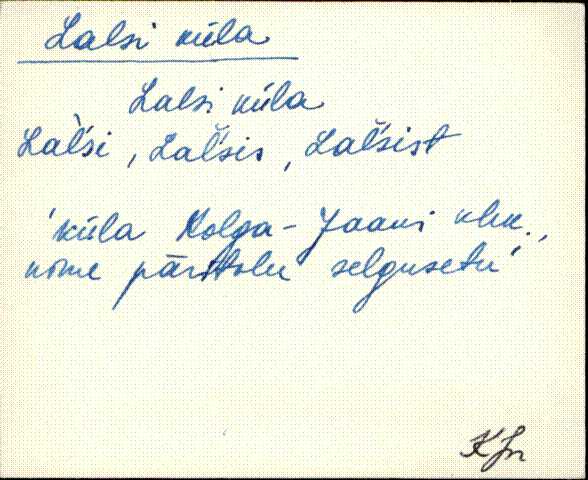 Lalsi küla
Lalsi küla
Lal̀si, Lal̆sis, Lal̆sist
'küla Kolga-Jaani khk.,
nime päritolu selgusetu'
KJn